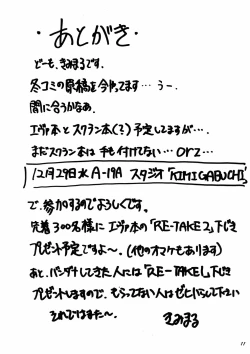 ・あとがき・
どーも、きみまるです。
冬コミの原稿を今やってます… うー。
間に合うかなあ。
エヴァ本とスクラン本(？)予定してますが…。
まだスクラン本は手も付けてない… orz…
12月29日水 A-19A スタジオ「KIMIGABUCHI」
で、参加するのでよろしくです。
先着300名様に エヴァ本の「RE-TAKE2」下じき
プレゼント予定ですよ〜。(他のオマケもあります)
あと、してきた人には「RE-TAKE1」下じき
プレゼントしますので、もらってない人はぜひいらして下さい
それではまた〜。 きみまる